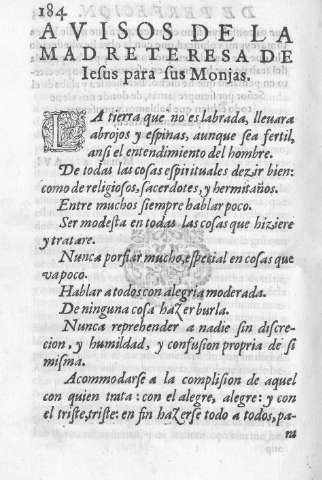 184
AVISOS DE LA
MADRE TERESA DE
Iesus para sus Monjas.
LA tierra que no es labrada, lleuara
abrojos y espinas, aunque sea fertil,
ansi el entendimiento del hombre.
De todas las cosas espirituales dezir bien:
como de religiosos, sacerdotes, y hermitaños.
Entre muchos siempre hablar poco.
Ser modesta en todas las cosas que hiziere
y tratare.
Nunca porfiar mucho, especial en cosas que
va poco.
Hablar a todos con alegria moderada.
De ninguna cosa hazer burla.
Nunca reprehender a nadie sin discre-
cion, y humildad, y confusion propria de si
misma.
Acommodarse a la complision de aquel
con quien trata: con el alegre, alegre: y con
el triste, triste: en fin hazerse todo a todos, pa-
ra